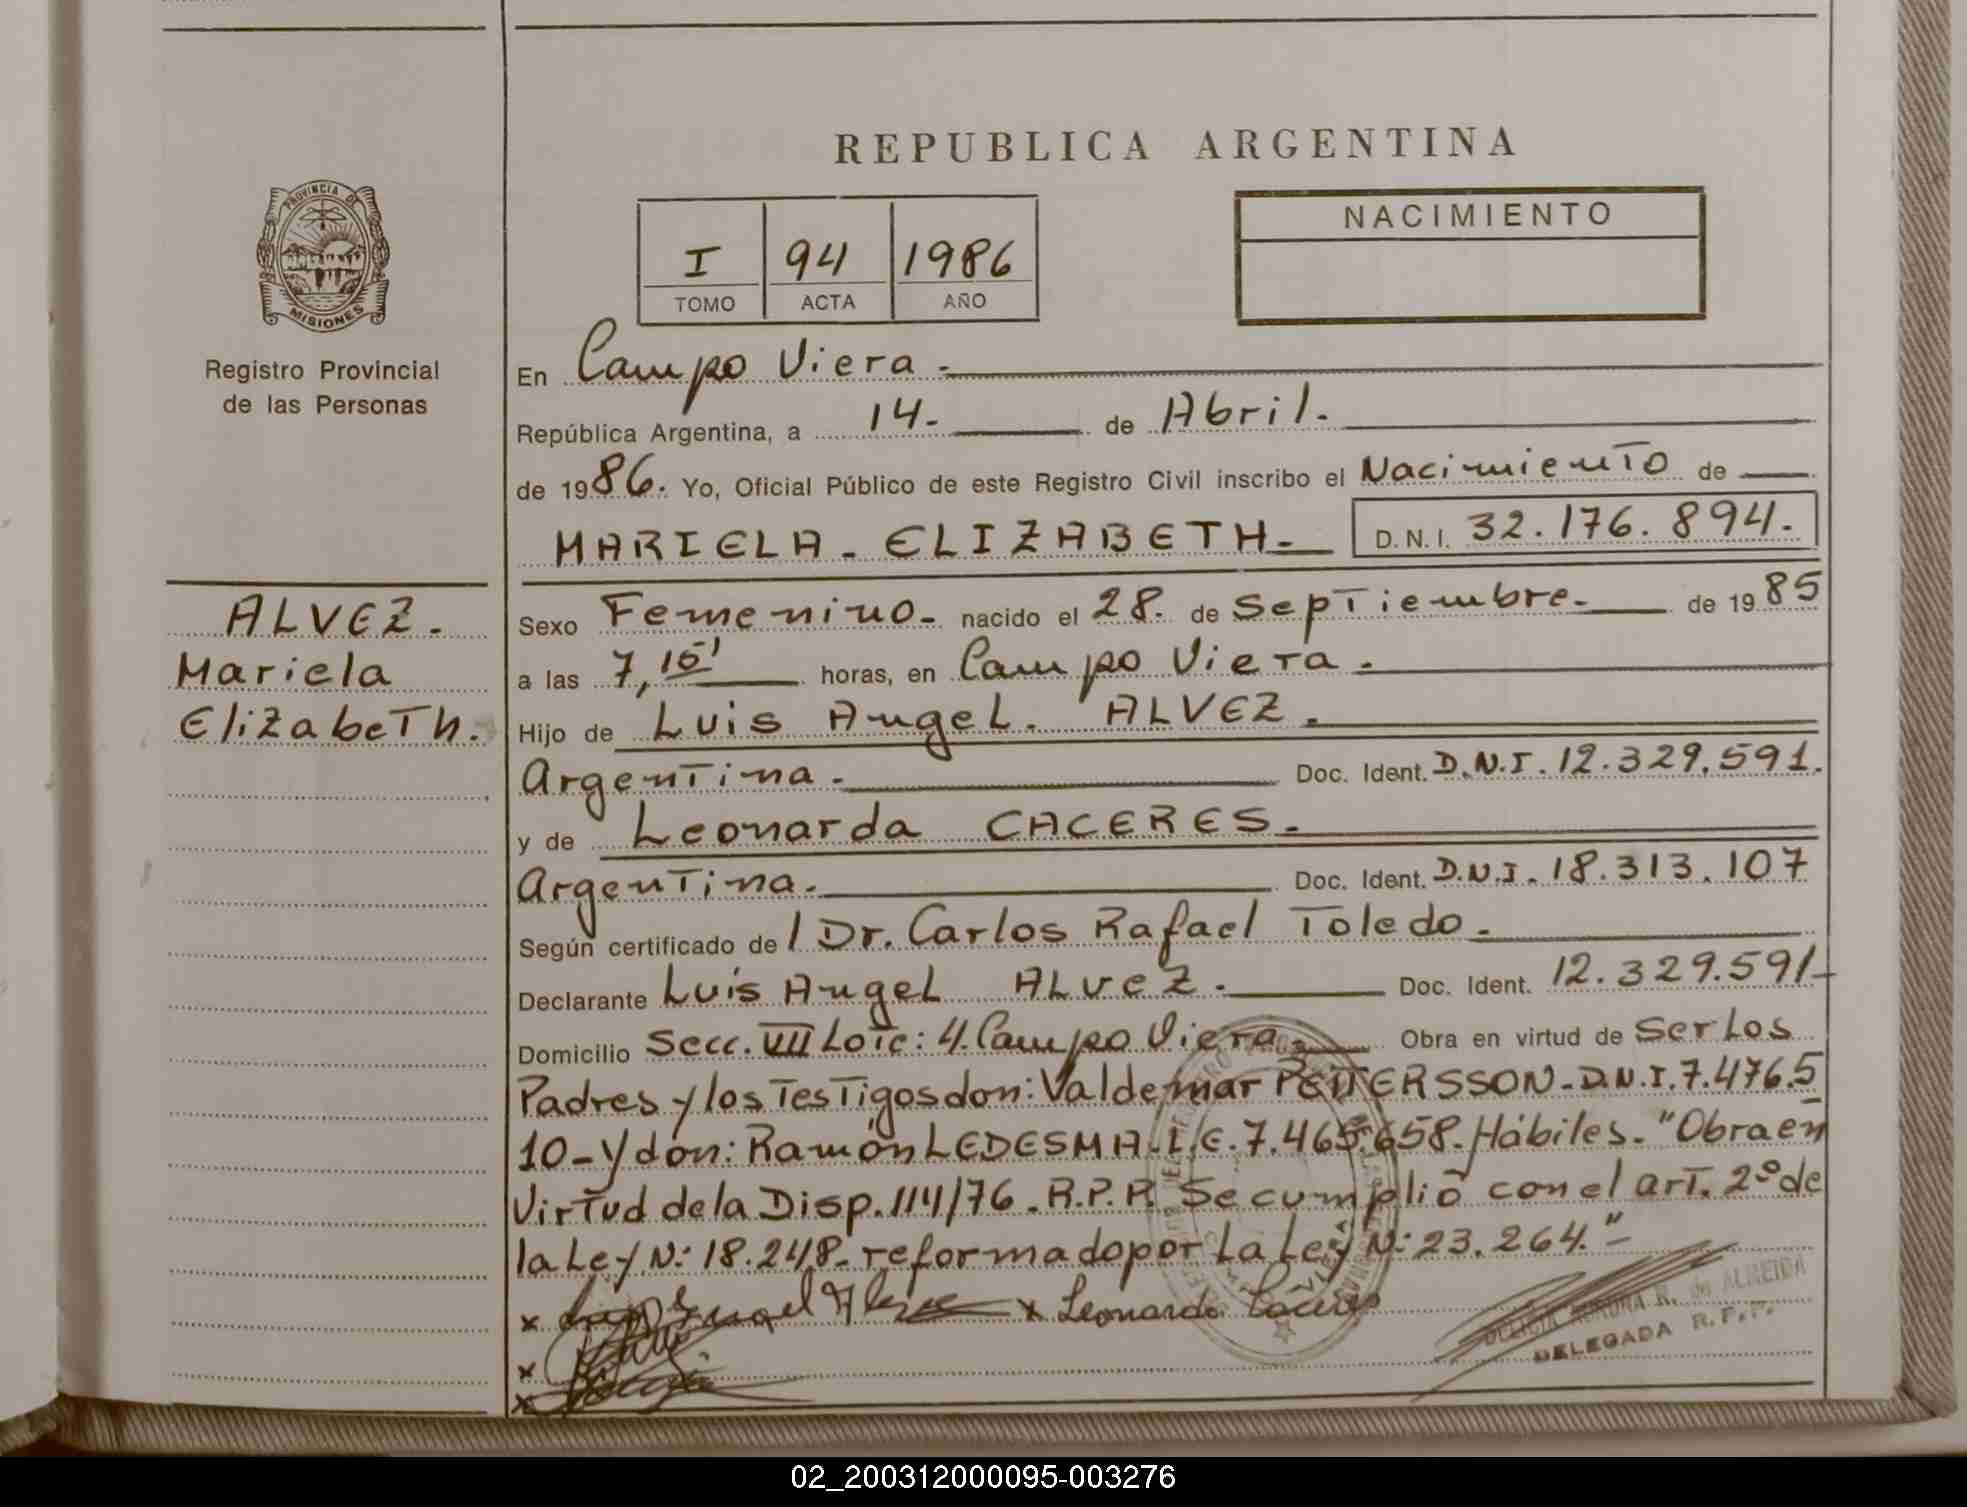 REPUBLICA ARGENTINA
PROVINCIA DE
MISIONES
Registro Provincial
de las Personas
I 94 1986
TOMO ACTA AÑO
NACIMIENTO
En Campo Viera.
República Argentina, a 14. de Abril.
de 1986. Yo, Oficial Público de este Registro Civil inscribo el Nacimiento de
MARIELA. ELIZABETH. D.N.I. 32.176.894.
ALVEZ.
Mariela
Elizabeth.
Sexo Femenino. nacido el 28. de Septiembre. de 1985
a las 7,15' horas, en Campo Viera.
Hijo de Luis Angel. ALVEZ.
Argentina. Doc. Ident. D.N.I. 12.329.591.
y de Leonarda CACERES.
Argentina. Doc. Ident. D.N.I. 18.313.107
Según certificado de / Dr. Carlos Rafael Toledo.
Declarante Luis Angel ALVEZ. Doc. Ident. 12.329.591-
Domicilio Secc. VII Lote: 4. Campo Viera. Obra en virtud de ser los
Padres y los Testigos don: Valdemar PETTERSSON. D.N.I. 7.476.5
10-y don: Ramón LEDESMA. L.E. 7.465.658. Hábiles. "Obra en
Virtud de la Disp. 114/76. R.P.P. Se cumplió con el art. 2º de
la Ley N: 18.248. reformado por la Ley N: 23.264."-
x Angel x Leonarda Caceres
x
x
R. de ALMEIDA
DELEGADA R.P.P.
02_200312000095-003276